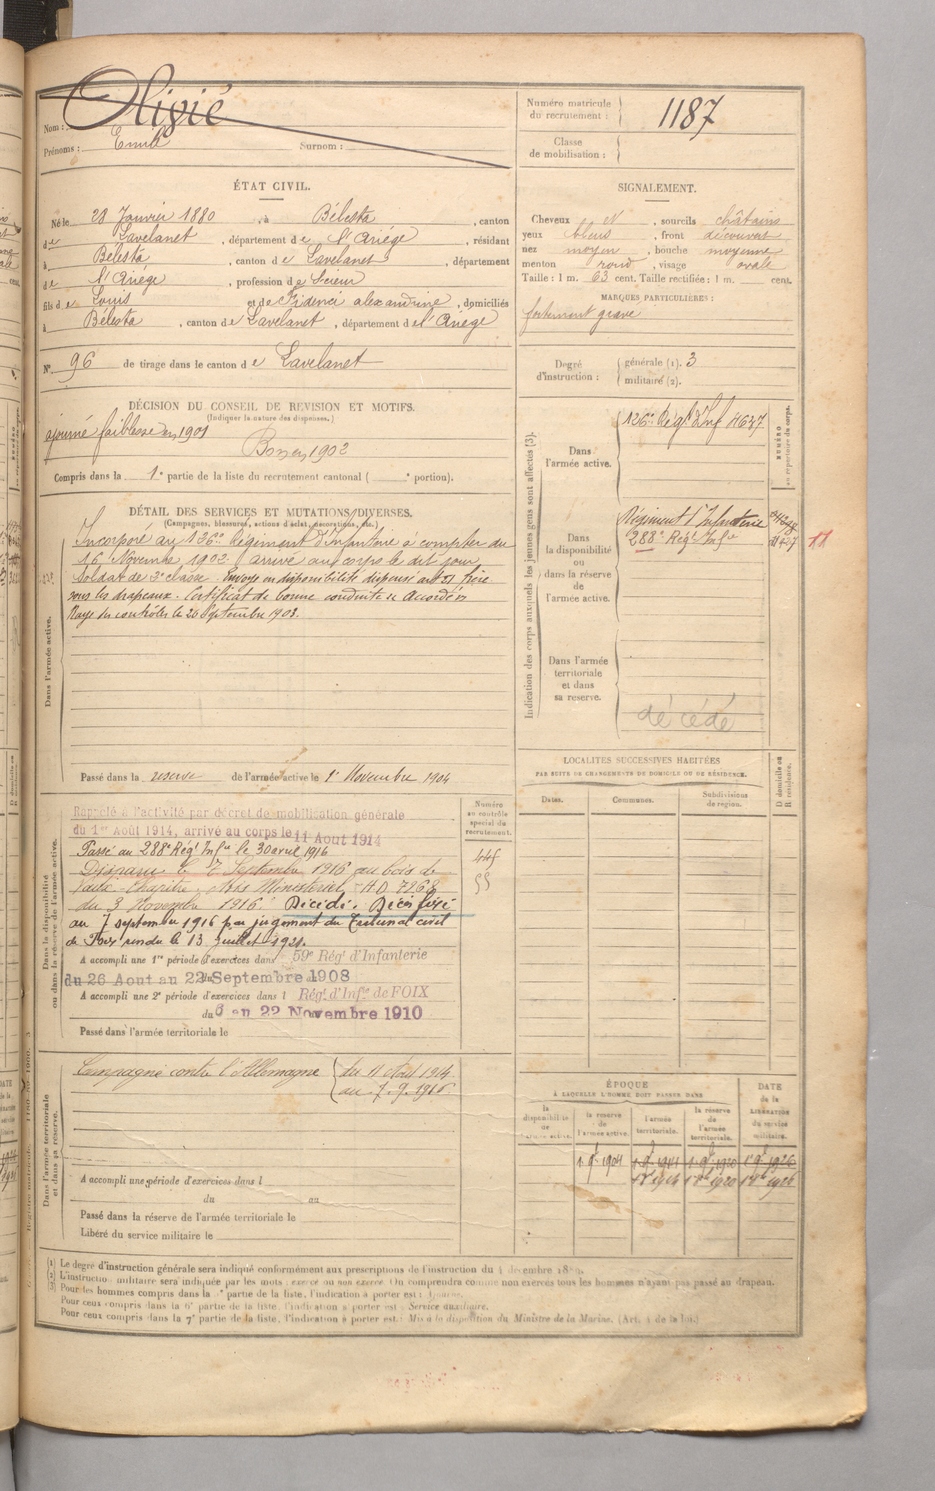 Nom : Olivié
Prénoms : Emile Surnom :
Numéro matricule du recrutement : 1187
Classe de mobilisation :
ÉTAT CIVIL.
Né le 28 Janvier 1880, à Bélesta, canton
de Lavelanet, département de l'Ariége, résidant
à Bélesta, canton de Lavelanet, département
de l'Ariége, profession de Scieur
fils de Louis et de alexandrine, domiciliés
à Bélesta, canton de Lavelanet, département de l'Ariége
N° 96 de tirage dans le canton de Lavelanet
SIGNALEMENT.
Cheveux d, sourcils châtains
yeux bleus, front découvert
nez moyen, bouche moyenne
menton rond, visage ovale
Taille : 1 m. 63 cent. Taille rectifiée : 1 m. cent.
MARQUES PARTICULIÈRES :
fortement gravé
Degré d'instruction : générale (1). 3
militaire (2).
DÉCISION DU CONSEIL DE REVISION ET MOTIFS.
(Indiquer la nature des dispenses.)
ajourné faiblesse en 1901
Bon en 1902
Compris dans la 1e partie de la liste du recrutement cantonal ( e portion).
DÉTAIL DES SERVICES ET MUTATIONS DIVERSES.
(Campagnes, blessures, actions d'éclat, décorations, etc.)
Dans l'armée active.
Incorporé au 126e Régiment d'Infanterie à compter du
16 Novembre 1902. arrivé au corps le dit jour
Soldat de 2e classe. Envoyé en disponibilité dispensé art 21 frère
sous les drapeaux. Certificat de bonne conduite Accordé
Rayé des contrôles le 20 Septembre 1903.
Passé dans la reserve de l'armée active le 1er Novembre 1904
Indication des corps auxquels les jeunes gens sont affectés (3).
NUMÉRO au répertoire du corps.
Dans l'armée active.
126e Régt d'Inf 4637
Dans la disponibilité ou dans la réserve de l'armée active.
Régiment d'Infanterie
288e Régt Infie
11
Dans l'armée territoriale et dans sa reserve.
décédé
LOCALITES SUCCESSIVES HABITÉES
PAR SUITE DE CHANGEMENTS DE DOMICILE OU DE RÉSIDENCE.
Dates. Communes. Subdivisions de region.
D. domicile ou R. residence.
Dans la disponibilité ou dans la réserve de l'armée active.
Numéro au contrôle spécial du recrutement.
Rappelé à l'activité par décret de mobilisation générale
du 1er Août 1914, arrivé au corps le 11 Août 1914
Passé au 288e Régt Infie le 30 avril 1916
Disparu le 7 Septembre 1916 au bois de
Vaux-Chapitre. Avis Ministériel AD 7268
du 3 Novembre 1916. Décédé. Décès fixé
au 7 septembre 1916 par jugement du Tribunal civil
de Foix rendu le 13 juillet 1921.
445
55
A accompli une 1re période d'exercices dans 59e Régt d'Infanterie
du 26 Aout au 22 Septembre 1908
A accompli une 2e période d'exercices dans l Régt d'Infie de FOIX
du 6 au 22 Novembre 1910
Passé dans l'armée territoriale le
Dans l'armée territoriale et dans sa reserve.
Campagne contre l'Allemagne du 11 Août 1914
au 7.9.1916.
A accompli une période d'exercices dans l
du au
Passé dans la réserve de l'armée territoriale le
Libéré du service militaire le
ÉPOQUE
À LAQUELLE L'HOMME DOIT PASSER DANS
DATE de la LIBÉRATION du service militaire.
la disponibilité de l'armée active.
la reserve de l'armée active.
l'armée territoriale.
la réserve de l'armée territoriale.
(1) Le degré d'instruction générale sera indiqué conformément aux prescriptions de l'instruction du 4 décembre 1889.
(2) L'instruction militaire sera indiquée par les mots : exercé ou non exercé. On comprendra comme non exercés tous les hommes n'ayant pas passé au drapeau.
(3) Pour les hommes compris dans la partie de la liste, l'indication à porter est :
Pour ceux compris dans la 6e partie de la liste, l'indication à porter est : Service auxiliaire.
Pour ceux compris dans la 7e partie de la liste, l'indication à porter est : Mis à la disposition du Ministre de la Marine. (Art. 4 de la loi.)